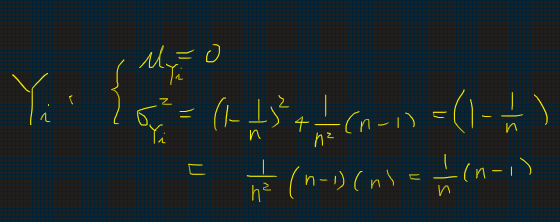 Y_i : { μ_{Y_i} = 0
σ²_{Y_i} = (1 - 1/n)² + 1/n² (n-1) = (1 - 1/n)
= 1/n² (n-1)(n) = 1/n (n-1)